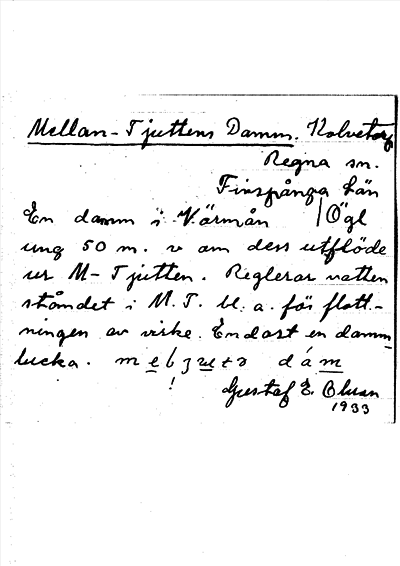 Mellan-Tjuttens Damm. Kolvetorp
Regna sn.
Finspånga län
En damm i Kärmån / Ögl
ung 50 m. v om dess utflöde
ur M-Tjutten. Reglerar vatten
ståndet i M. T. bl. a. för flott-
ningen av virke. Endast en damm
lucka. dám
!
Gustaf E. Olsson
1933